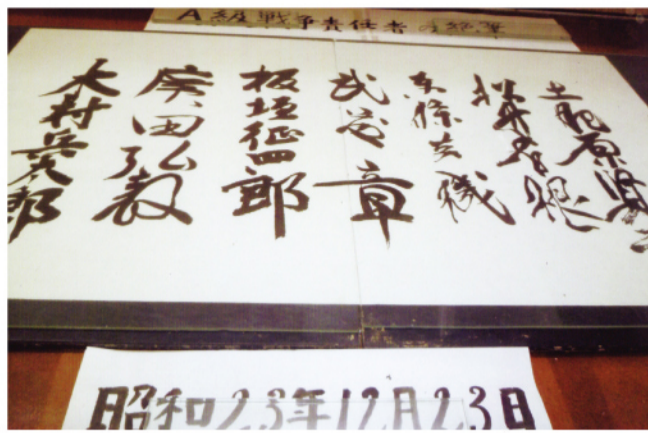 A級戦争責任者の絶筆
土肥原賢二
松井石根
東條英機
武藤章
板垣征四郎
廣田弘毅
木村兵太郎
昭和23年12月23日